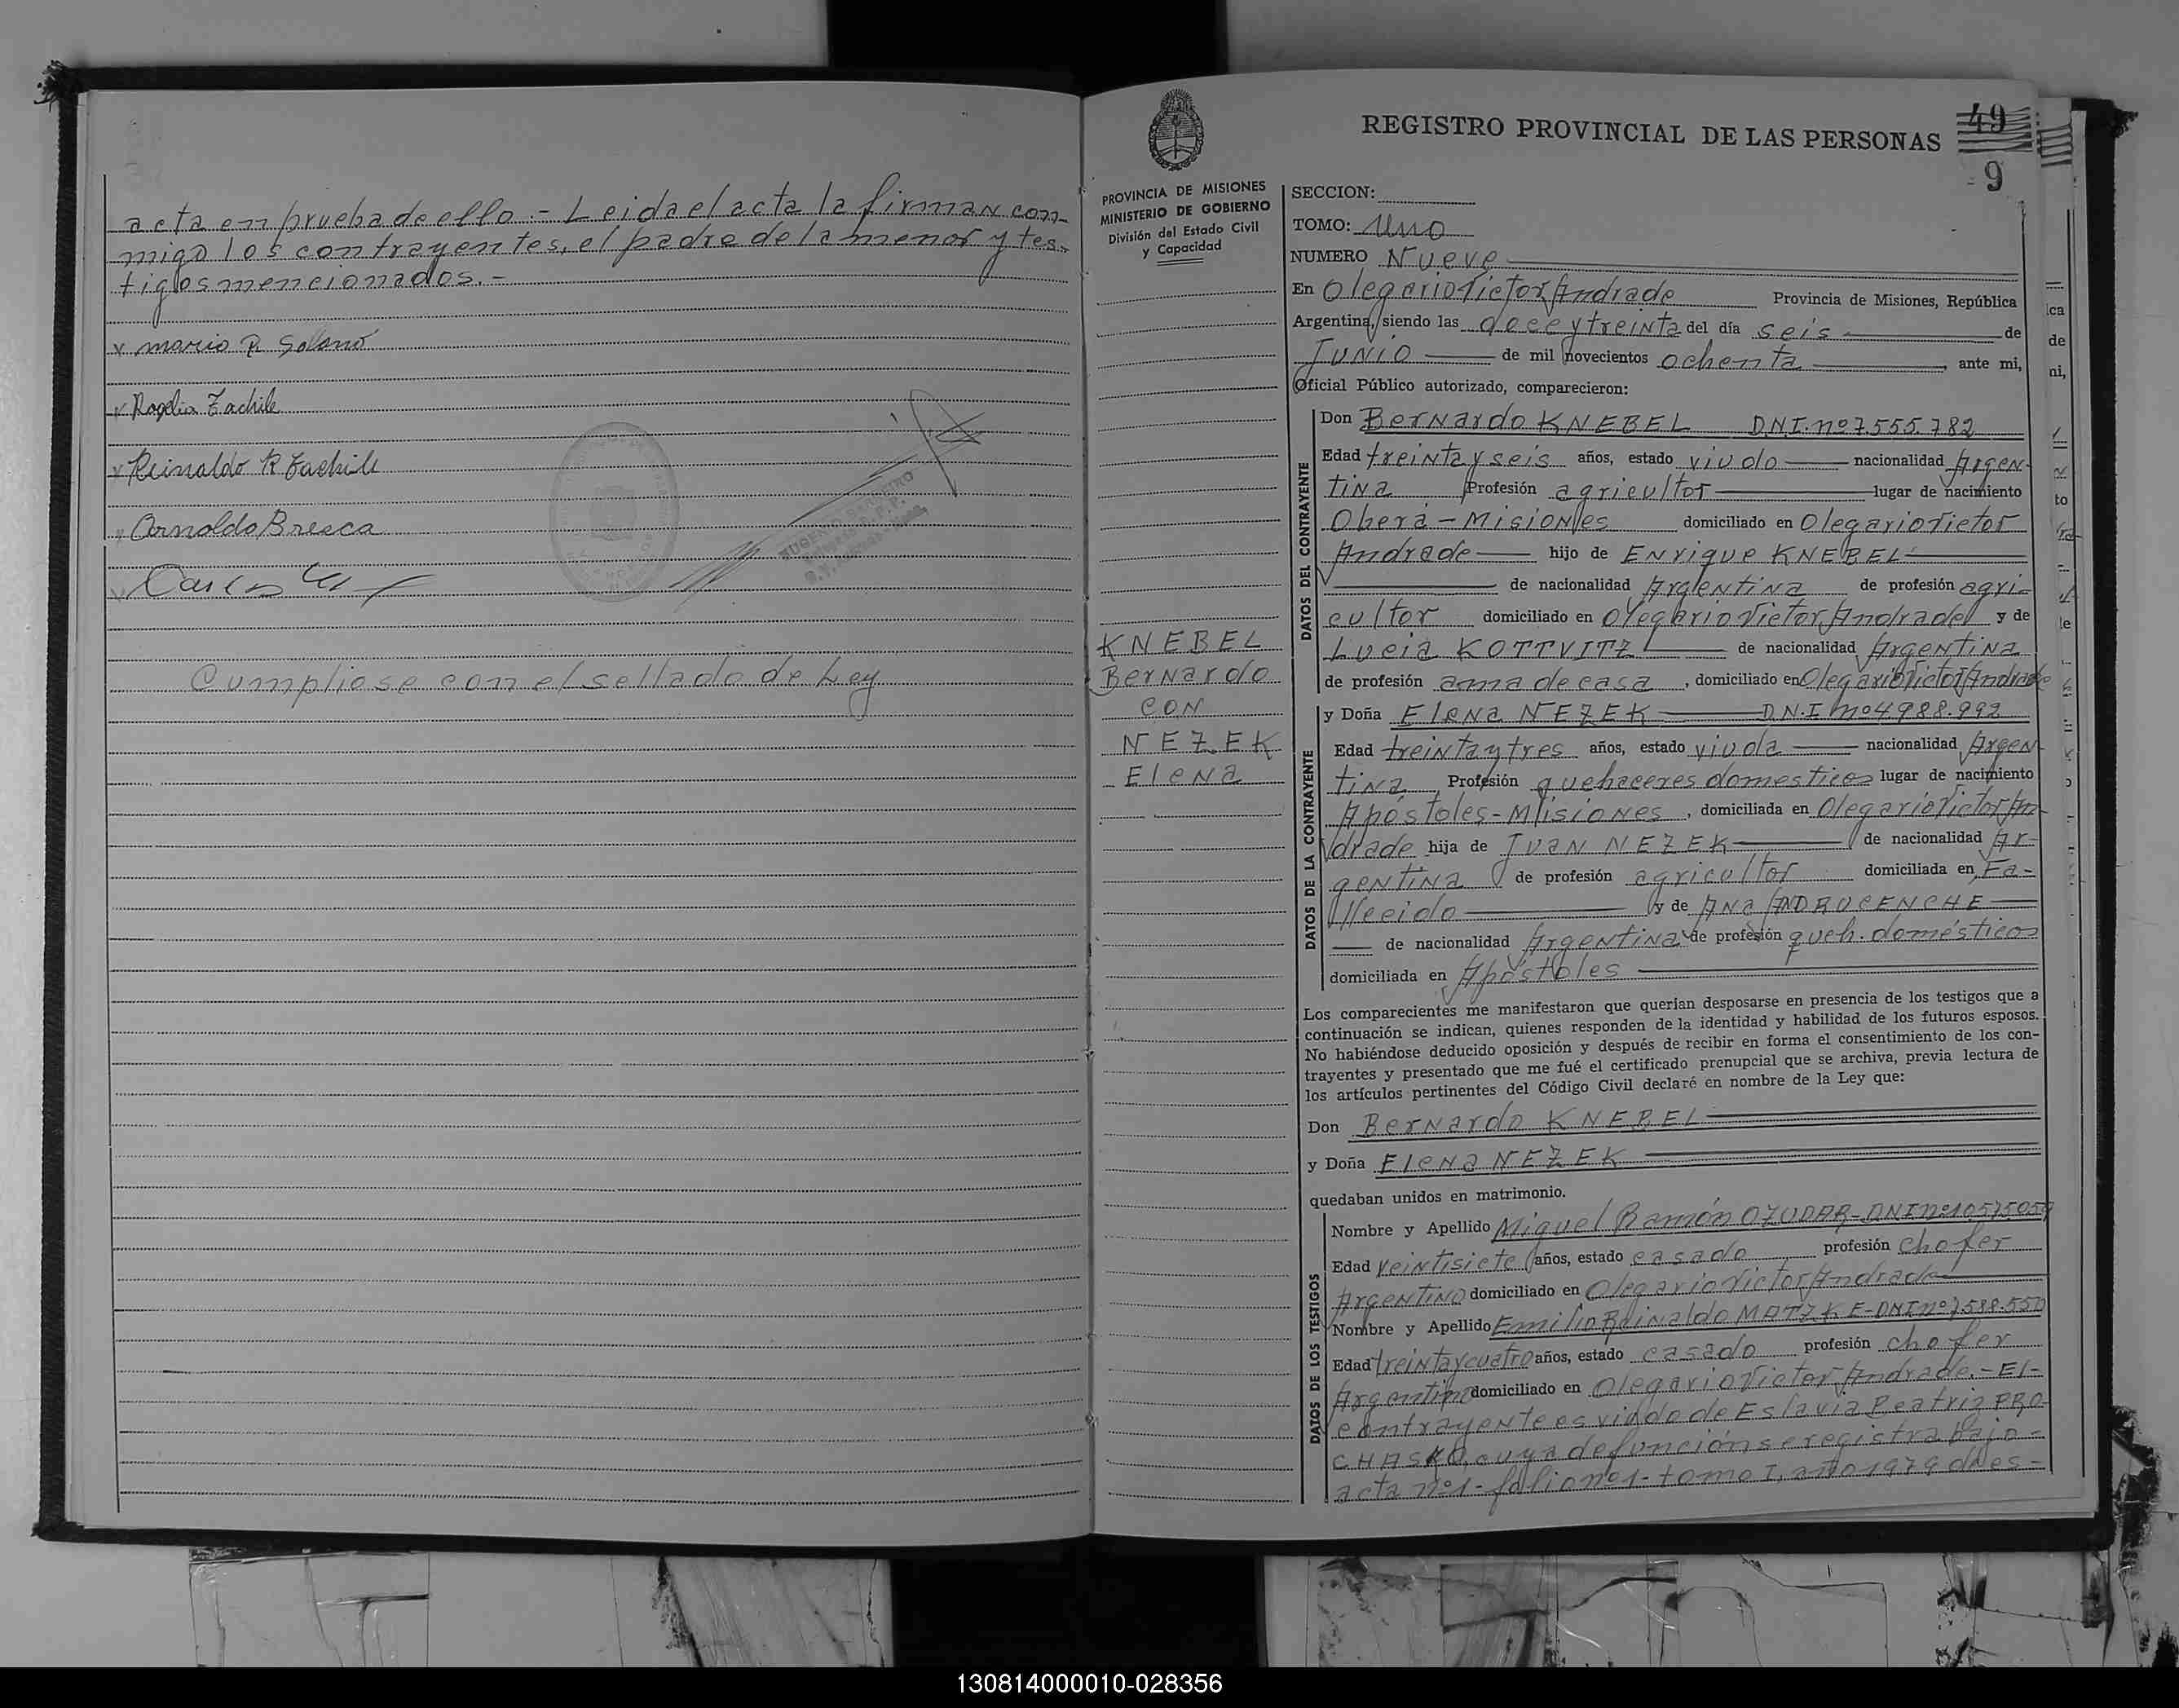 acta en prueba de ello.- Leida el acta la firman con-
migo los contrayentes, el padre de la menor y tes-
tigos mencionados.-
x Mario R Solano
x Rogelia Zachile
x Reinaldo R Zachile
x Arnoldo Bresca
x Carlos
Cumpliose con el sellado de Ley
REGISTRO PROVINCIAL DE LAS PERSONAS
49
9
PROVINCIA DE MISIONES
MINISTERIO DE GOBIERNO
División del Estado Civil
y Capacidad
KNEBEL
Bernardo
CON
NEZEK
Elena
SECCION:
TOMO: Uno
NUMERO Nueve
En Olegario Victor Andrade Provincia de Misiones, República
Argentina, siendo las doce y treinta del día seis de
Junio de mil novecientos ochenta ante mi,
Oficial Público autorizado, comparecieron:
DATOS DEL CONTRAYENTE
Don Bernardo KNEBEL D.N.I. nº 7.555.782
Edad treinta y seis años, estado viudo nacionalidad Argen-
tina Profesión agricultor lugar de nacimiento
Oberá - Misiones domiciliado en Olegario Victor
Andrade hijo de Enrique KNEBEL
de nacionalidad Argentina de profesión agri-
cultor domiciliado en Olegario Victor Andrade y de
Lucia KOTTVITZ de nacionalidad Argentina
de profesión ama de casa, domiciliado en Olegario Victor Andrade
DATOS DE LA CONTRAYENTE
y Doña Elena NEZEK D.N.I nº 4.988.992
Edad treinta y tres años, estado viuda nacionalidad Argen-
tina Profesión quehaceres domesticos lugar de nacimiento
Apóstoles - Misiones, domiciliada en Olegario Victor An-
drade hija de Juan NEZEK de nacionalidad Ar-
gentina de profesión agricultor domiciliada en Fa-
llecido y de Ana ANDRUCENCHE
de nacionalidad Argentina de profesión queh. domésticos
domiciliada en Apóstoles
Los comparecientes me manifestaron que querían desposarse en presencia de los testigos que a
continuación se indican, quienes responden de la identidad y habilidad de los futuros esposos.
No habiéndose deducido oposición y después de recibir en forma el consentimiento de los con-
trayentes y presentado que me fué el certificado prenupcial que se archiva, previa lectura de
los artículos pertinentes del Código Civil declaré en nombre de la Ley que:
Don Bernardo KNEBEL
y Doña Elena NEZEK
quedaban unidos en matrimonio.
DATOS DE LOS TESTIGOS
Nombre y Apellido Miguel Ramón OZUDAR - DNI nº 10575059
Edad veintisiete años, estado casado profesión chofer
Argentino domiciliado en Olegario Victor Andrade
Nombre y Apellido Emilio Reinaldo MATZKE - DNI nº 7.588.550
Edad treinta y cuatro años, estado casado profesión chofer
Argentino domiciliado en Olegario Victor Andrade.- El-
contrayente es viudo de Eslavia Beatriz PRO-
CHASKO, cuya defunción se registra bajo-
acta nº 1 - folio nº 1 - tomo I, año 1979 de es-
130814000010-028356